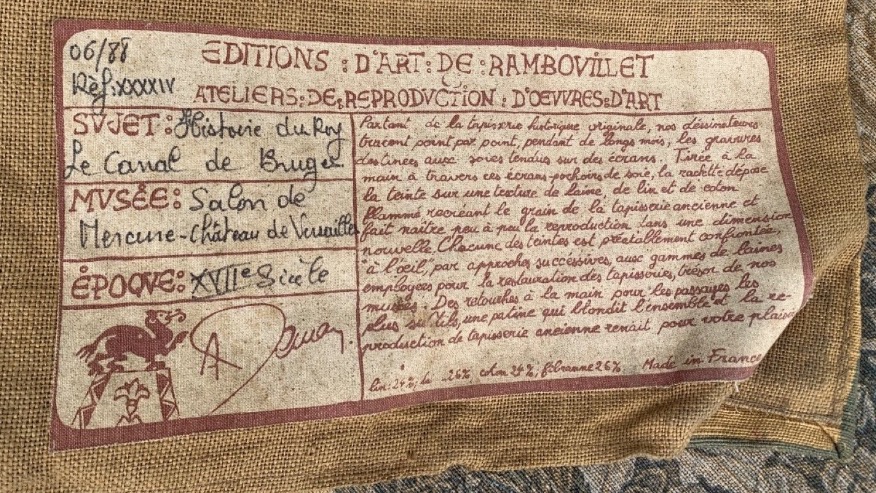 06/88
Réf:XXXXIV
EDITIONS : D'ART : DE : RAMBOVILLET
ATELIERS : DE : REPRODVCTION : D'OEVVRES : D'ART
SVJET : Histoire du Roy
Le Canal de Bruges
MVSÉE : Salon de
Mercure-Château de Versailles
ÉPOQVE : XVIIe Siècle
Partant de la tapisserie historique originale, nos dessinateurs
tracent point par point, pendant de longs mois, les gravures
destinées aux soies tendues sur des écrans. Tirée à la
main à travers ces écrans pochoirs de soie, la raclette dépose
la teinte sur une texture de laine, de lin et de coton
flammé recréant le grain de la tapisserie ancienne et
fait naître peu à peu la reproduction dans une dimension
nouvelle. Chacune des teintes est préalablement confrontée,
"à l'oeil", par approches successives, aux gammes de laines
employées pour la restauration des tapisseries, trésor de nos
musées. Des retouches à la main pour les passages les
plus subtils, une patine qui blondit l'ensemble et la re-
production de tapisserie ancienne renait pour votre plaisir
lin: 24%, 26%, coton 24%, fibranne 26% Made in France